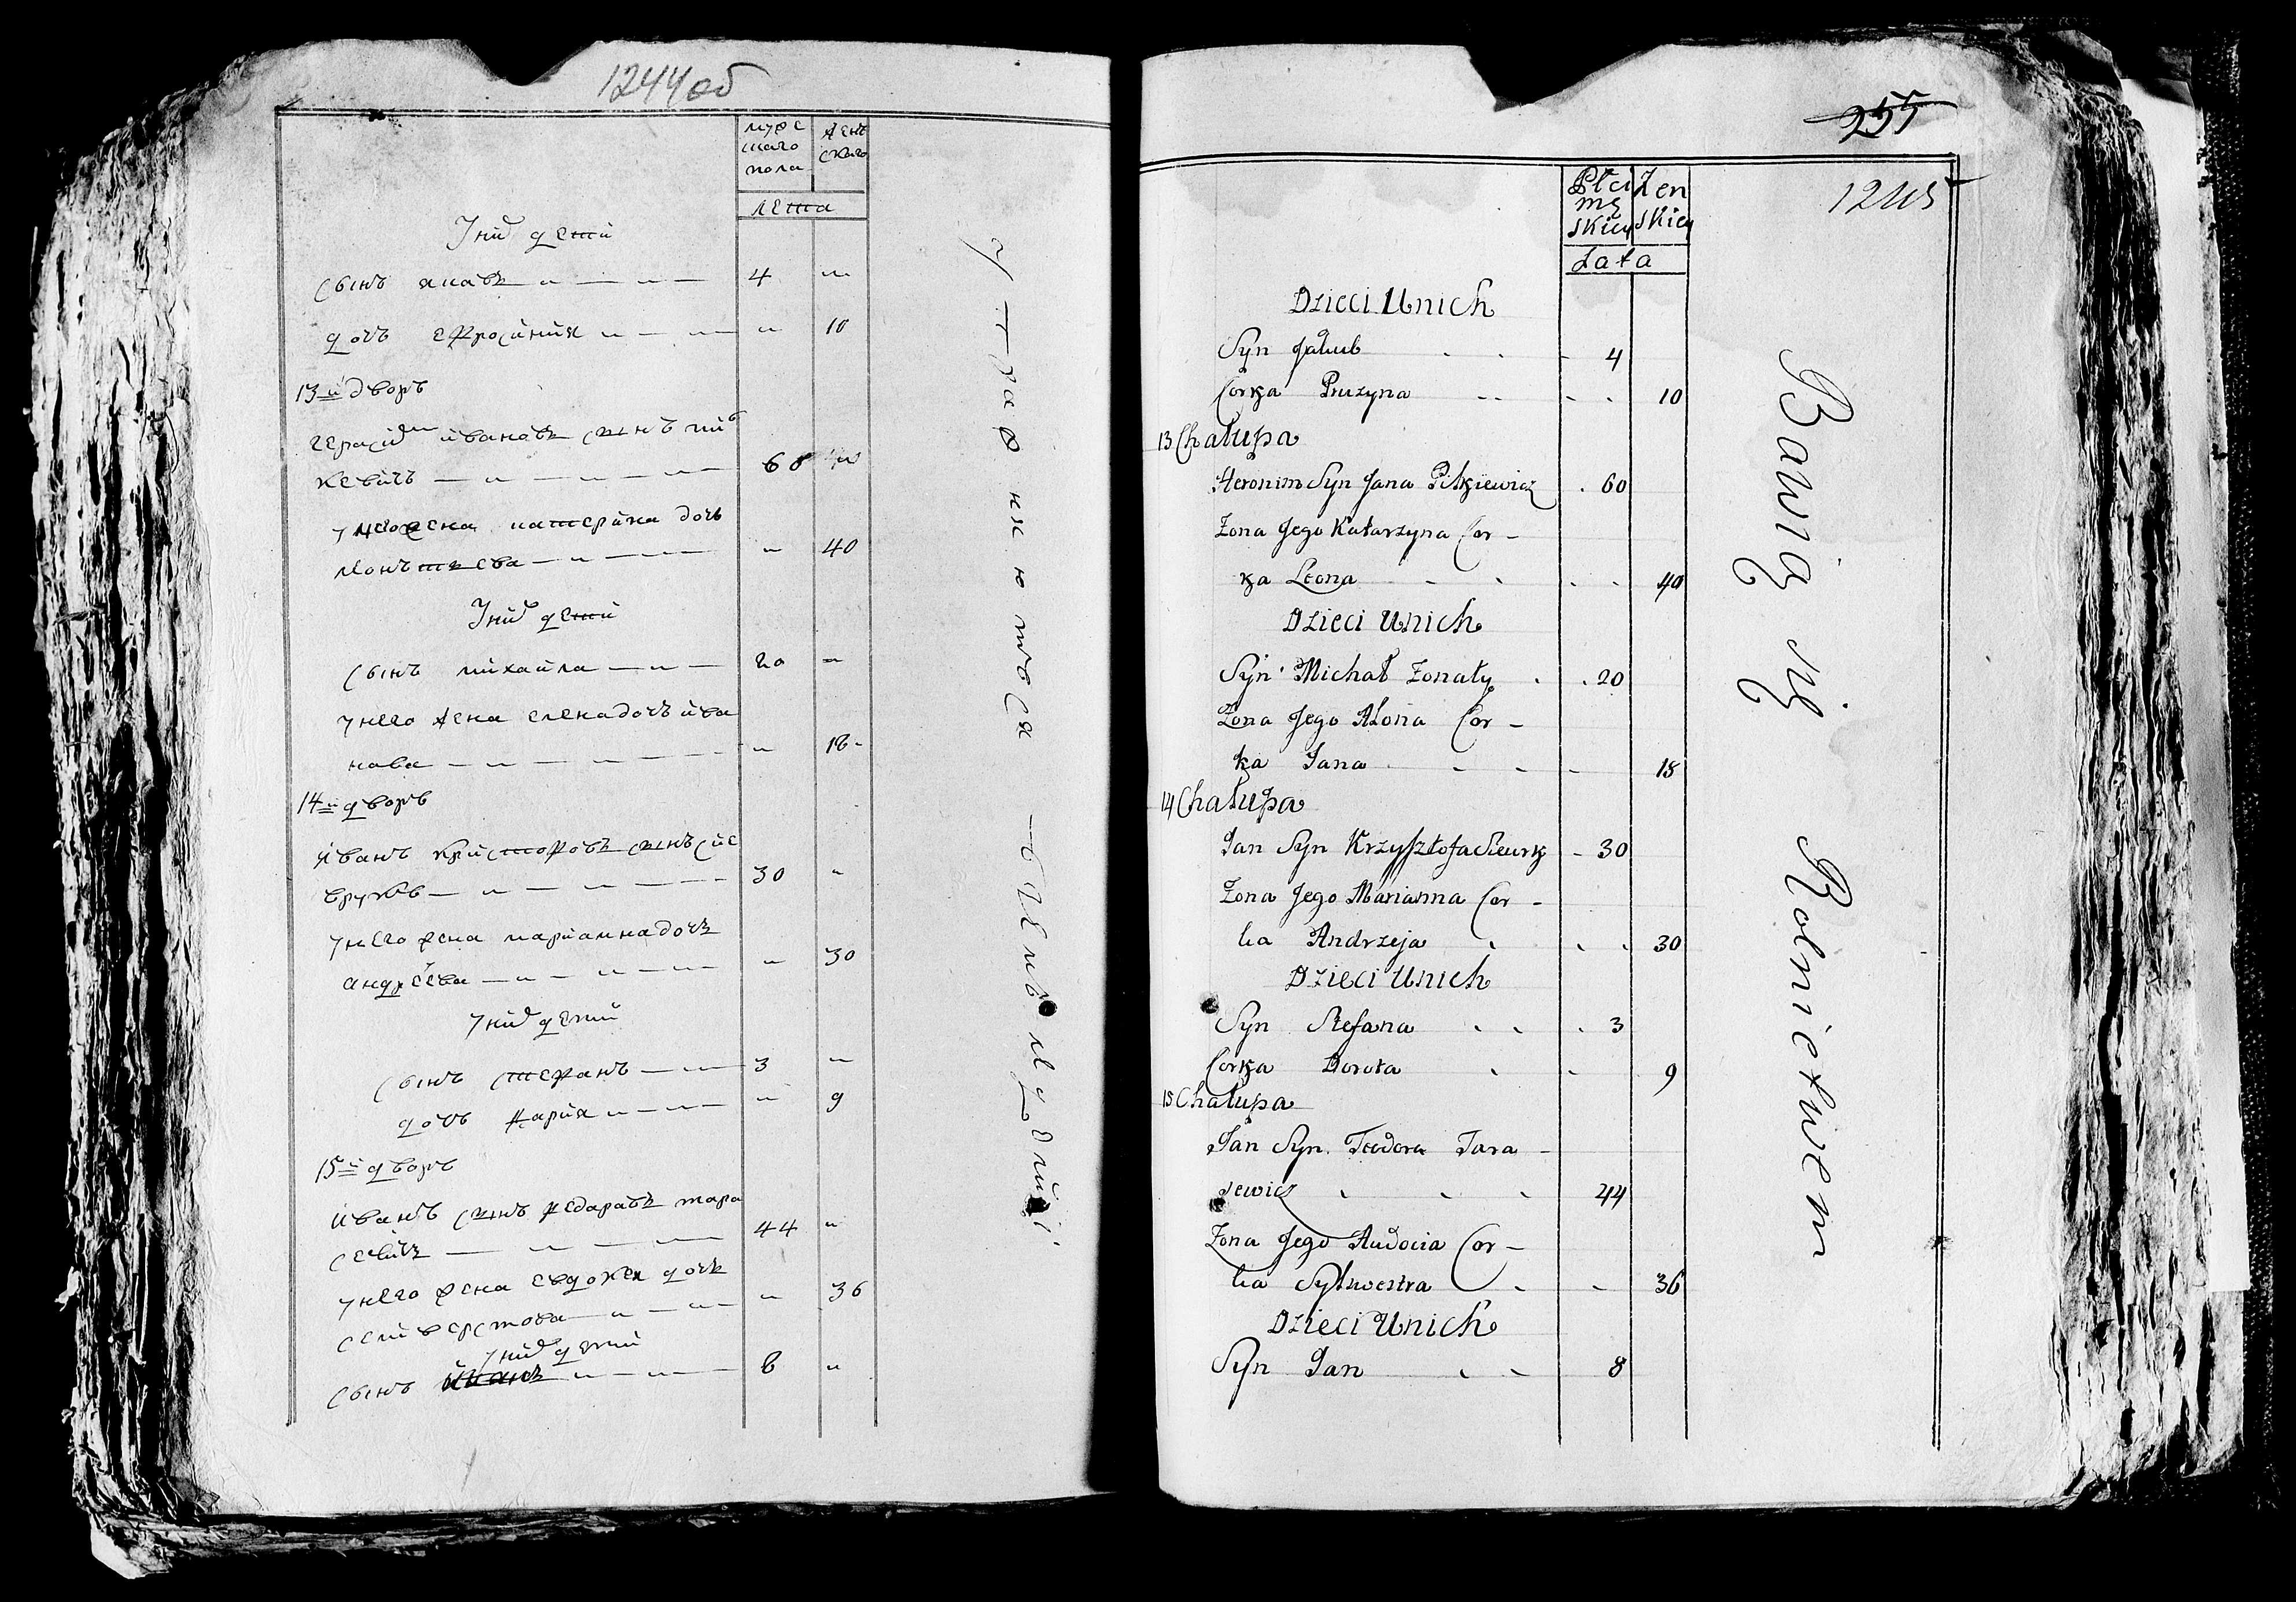 1244об
мужс
каго
пола
женс
скаго
лета
У них детей
сынъ яковъ 4 "
дочь ефросиния " 10
13й дворъ
герасим ивановъ сынъ пит
кевичь 60
у него жена катерина дочь
леонтьева " 40
У них детей
сынъ михайла 20 "
у него жена елена дочь ива
нава " 18
14й дворъ
иванъ кристофовъ сынъ сие
врукъ 30 "
у него жена марианна дочь
андреева " 30
у них детей
сынъ стефанъ 3 "
дочь дария " 9
15й дворъ
иванъ сынъ федаравъ тара
севичь 44 "
у него жена евдокея дочь
селиверстова " 36
у них детей
сынъ иванъ 8 "
упражняются
255
1245
Płci
mę
skiey
Zen
skiey
Lata
Dzieci Unich
Syn Jakub 4
Corka Pruzyna 10
13 Chałupa
Heronim Syn Jana Pitkiewicz 60
Zona Jego Katarzyna Cor-
ka Leona 40
Dzieci Unich
Syn Michał Zonaty 20
Zona Jego Alona Cor-
ka Jana 18
14 Chałupa
Jan Syn Krzysztofa Siewruk 30
Zona Jego Marianna Cor-
ka Andrzeja 30
Dzieci Unich
Syn Stefana 3
Corka Dorota 9
15 Chałupa
Jan Syn Teodora Tara-
sewicz 44
Zona Jego Audocia Cor-
ka Sylwestra 36
Dzieci Unich
Syn Jan 8
Bawią się Rolnictwem